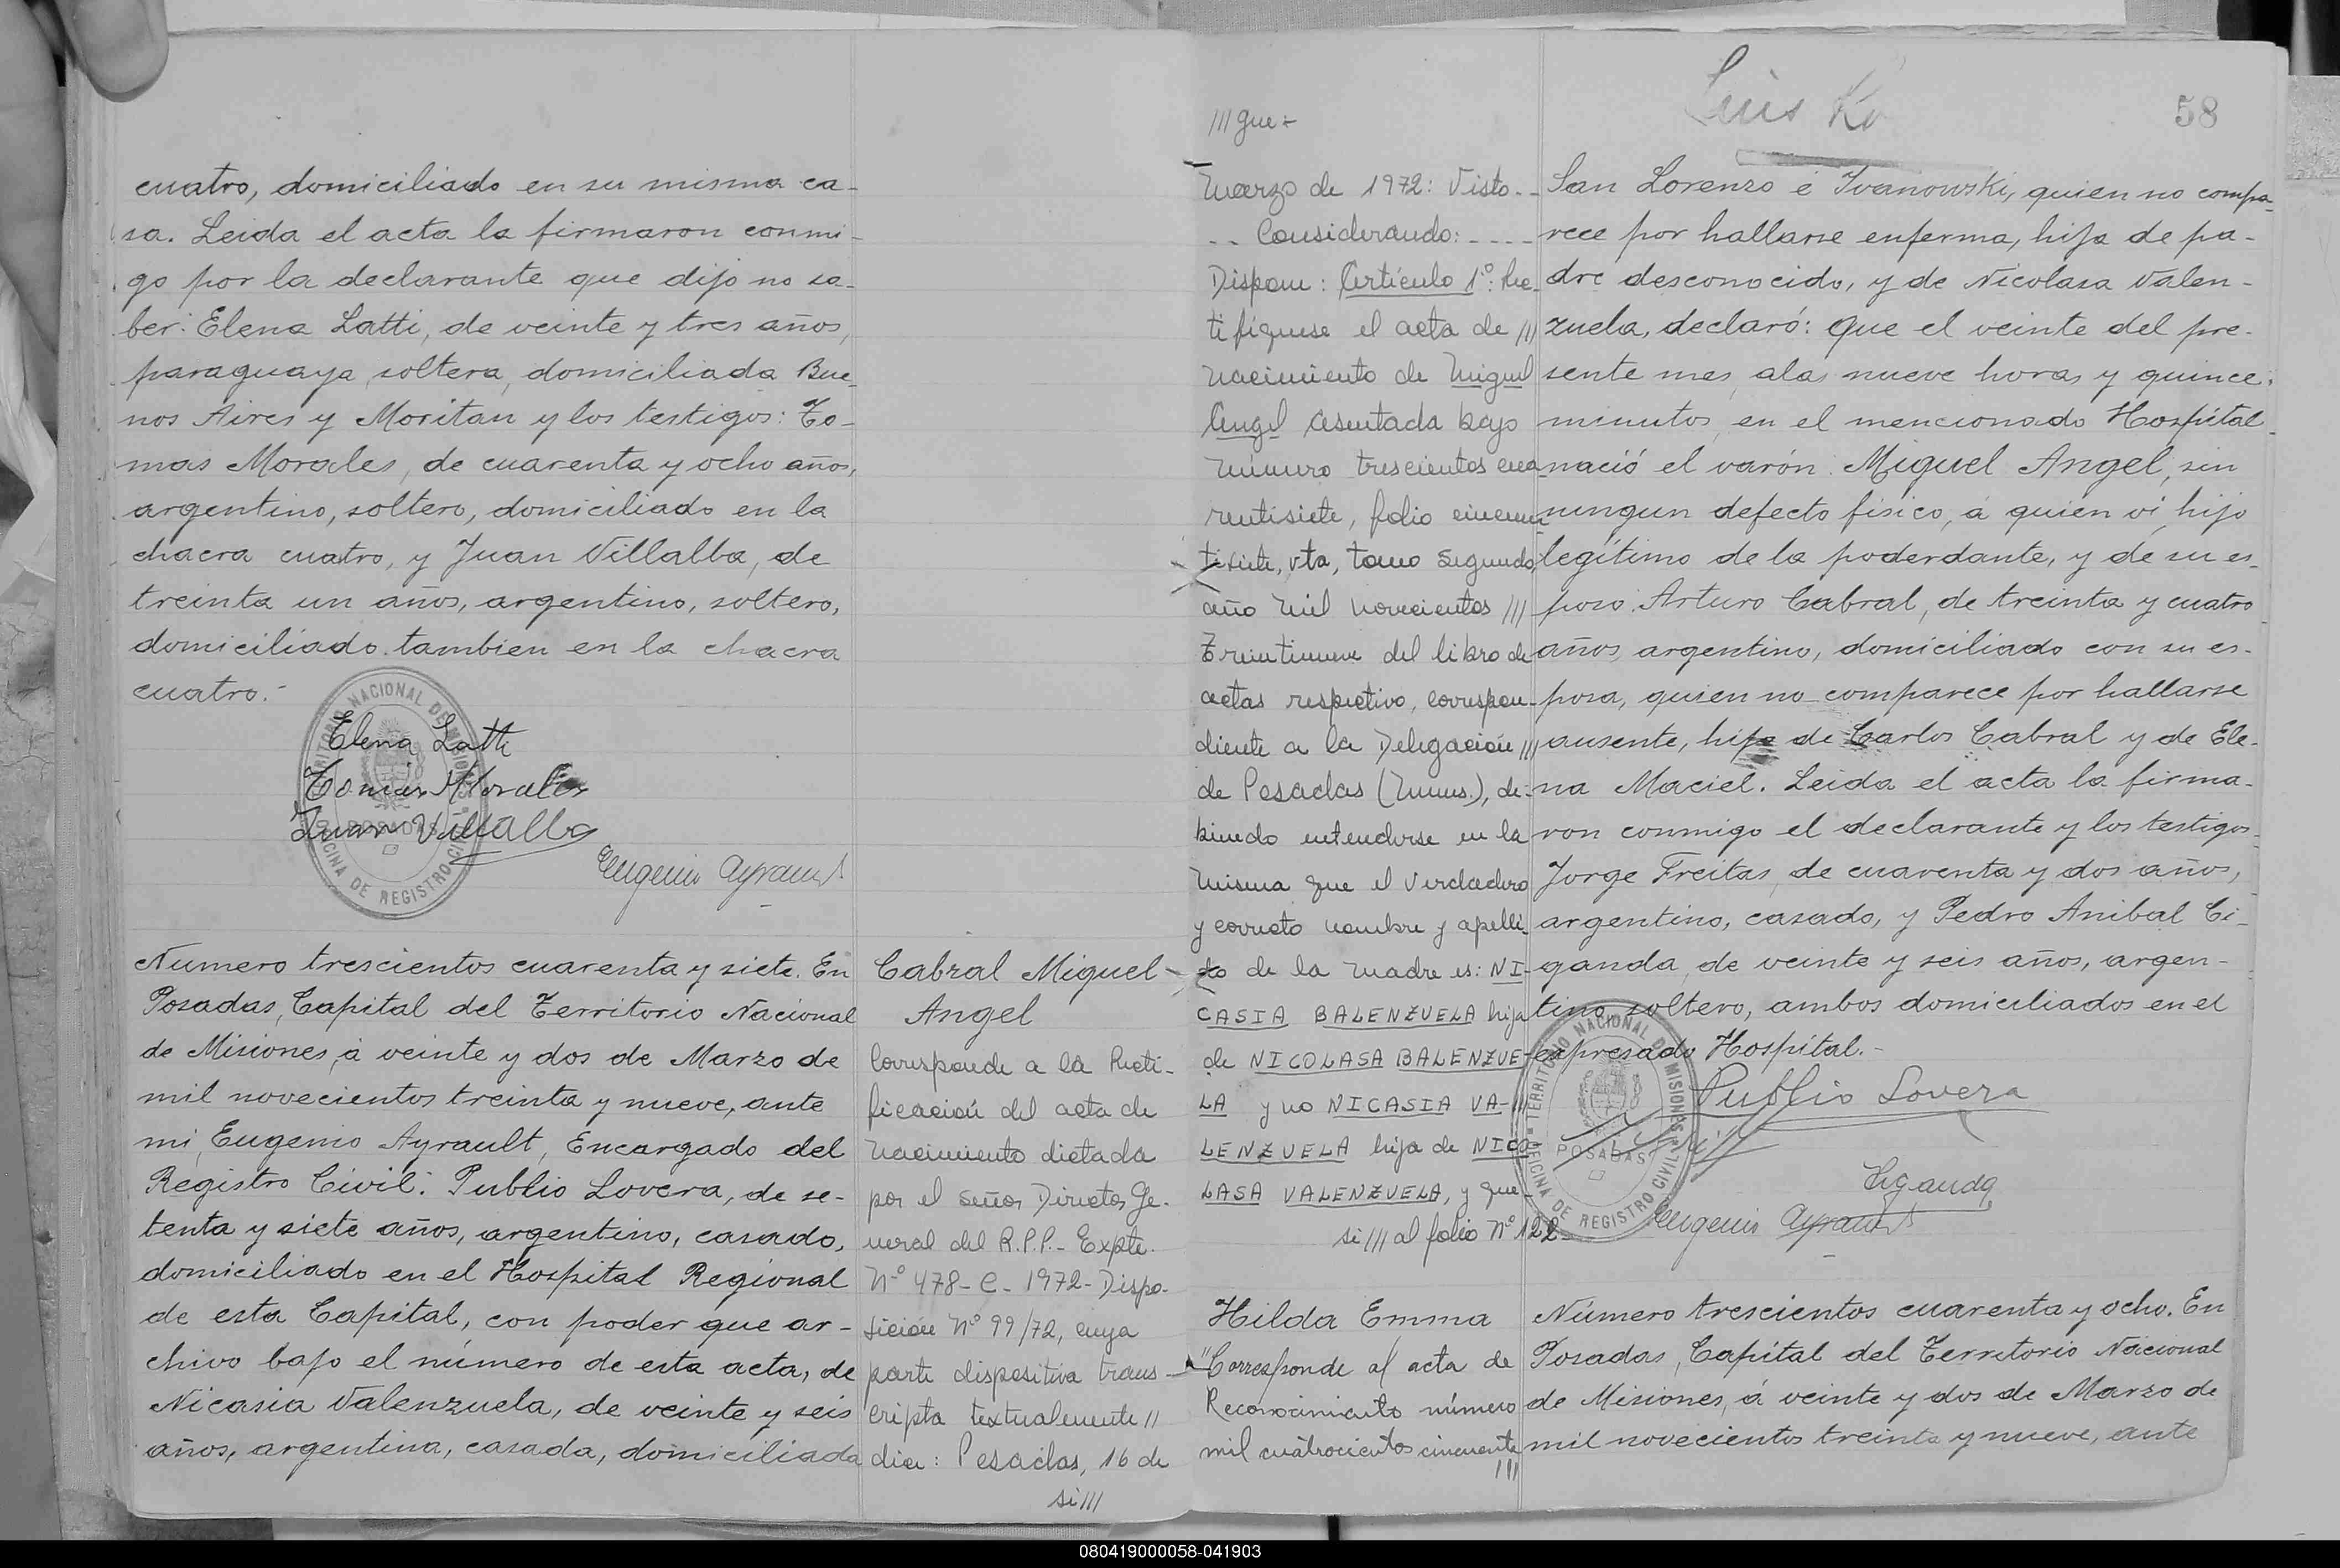 cuatro, domiciliado en su misma ca-
sa. Leida el acta la firmaron conmi-
go por la declarante que dijo no sa-
ber: Elena Latti, de veinte y tres años,
paraguaya, soltera, domiciliada Bue-
nos Aires y Moritan y los testigos: To-
mas Morales, de cuarenta y ocho años,
argentino, soltero, domiciliado en la
chacra cuatro, y Juan Villalba, de
treinta un años, argentino, soltero,
domiciliado tambien en la chacra
cuatro.-
Elena Latti
Tomás Morales
Juan Villalba
Eugenio Ayrault
TERRITORIO NACIONAL DE MISIONES
POSADAS
OFICINA DE REGISTRO CIVIL
Numero trescientos cuarenta y siete. En
Posadas, Capital del Territorio Nacional
de Misiones, á veinte y dos de Marzo de
mil novecientos treinta y nueve, ante
mi, Eugenio Ayrault, Encargado del
Registro Civil: Publio Lovera, de se-
tenta y siete años, argentino, casado,
domiciliado en el Hospital Regional
de esta Capital, con poder que ar-
chivo bajo el número de esta acta, de
Nicasia Valenzuela, de veinte y seis
años, argentina, casada, domiciliada
Cabral Miguel
Angel
Corresponde a la Recti-
ficación del acta de
nacimiento dictada
por el señor Director Ge-
neral del R.P.P.- Expte.
Nº 478-C- 1972- Dispo-
sición Nº 99/72, cuya
parte dispositiva trans-
cripta textualmente //
dice: Posadas, 16 de
si///
///gue:-
Marzo de 1972: Visto--
-- Considerando: ----
Dispone: Artículo 1º: Rec-
tifiquese el acta de ///
nacimiento de Miguel
Angel asentada bajo
número trescientos cua-
rentisiete, folio cincuen-
tisiete, vta, tomo segundo,
año mil novecientos ///
treintinueve del libro de
actas respectivo, correspon-
diente a la Delegación ///
de Posadas (Mnes.), de-
biendo entenderse en la
misma que el verdadero
y correcto nombre y apelli-
do de la madre es: NI-
CASIA BALENZUELA hija
de NICOLASA BALENZUE-
LA y no NICASIA VA-///
LENZUELA hija de NICO-
LASA VALENZUELA, y que
si /// al folio Nº 122
Hilda Emma
"Corresponde al acta de
Reconocimiento número
mil cuatrocientos cincuenta
///
Luis Ko
58
San Lorenzo é Ivanowski, quien no compa-
rece por hallarse enferma, hija de pa-
dre desconocido, y de Nicolasa Valen-
zuela, declaró: Que el veinte del pre-
sente mes, alas nueve horas y quince
minutos, en el mencionado Hospital
nació el varón: Miguel Angel, sin
ningun defecto físico, á quien ví, hijo
legítimo de la poderdante, y de su es-
poso: Arturo Cabral, de treinta y cuatro
años, argentino, domiciliado con su es-
posa, quien no comparece por hallarse
ausente, hijo de Carlos Cabral y de Ele-
na Maciel. Leida el acta la firma-
ron conmigo el declarante y los testigos
Jorge Freitas, de cuarenta y dos años,
argentino, casado, y Pedro Anibal Ci-
ganda, de veinte y seis años, argen-
tino, soltero, ambos domiciliados en el
expresado Hospital.-
Publio Lovera
Ciganda
Eugenio Ayrault
TERRITORIO NACIONAL DE MISIONES
POSADAS
OFICINA DE REGISTRO CIVIL
Número trescientos cuarenta y ocho. En
Posadas, Capital del Territorio Nacional
de Misiones, á veinte y dos de Marzo de
mil novecientos treinta y nueve, ante
080419000058-041903